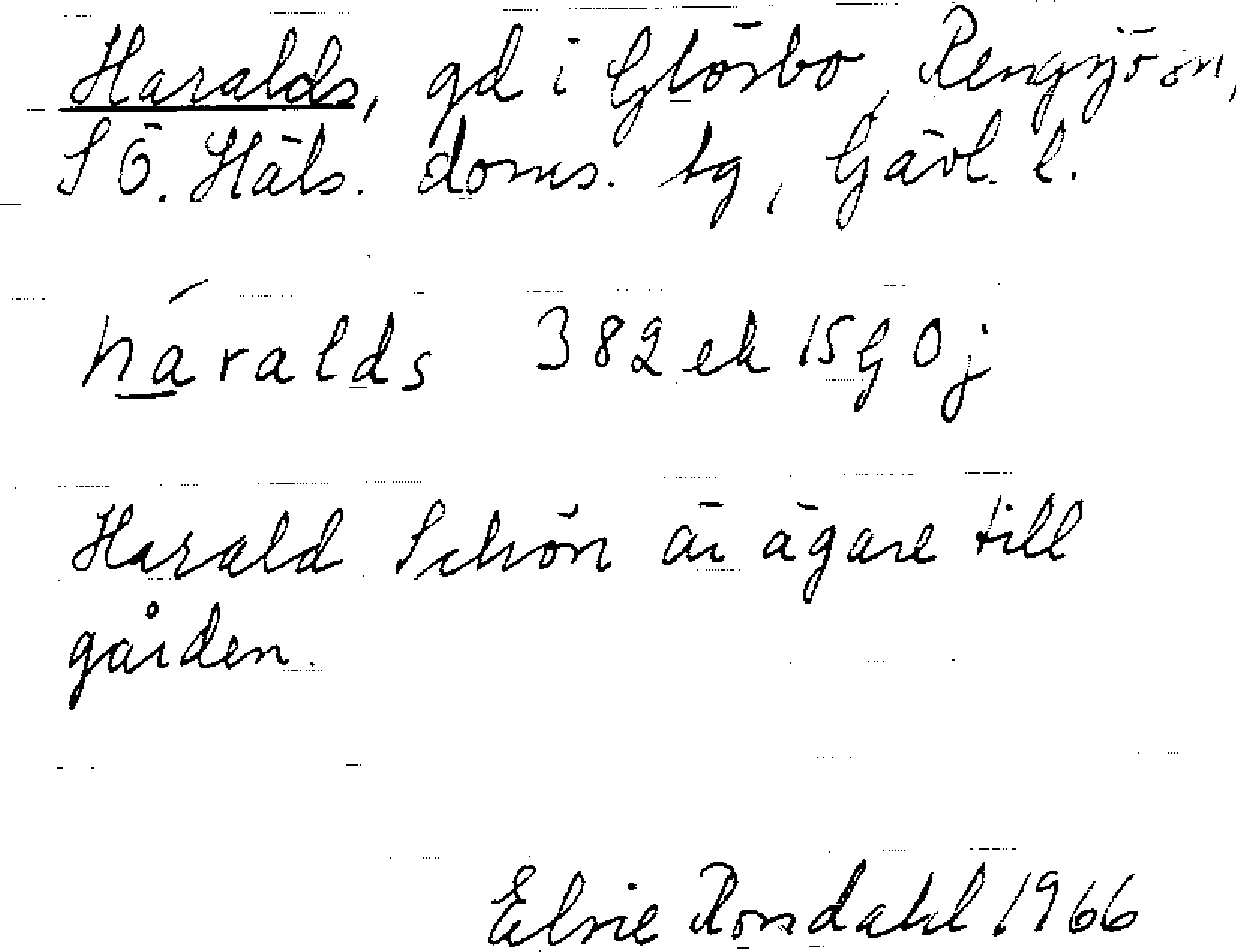 Haralds, gd i Glösbo, Rengsjö sn,
SÖ. Häls. doms. tg, Gävl. l.
háralds 382 ek 15G 0j
Harald Schön är ägare till
gården.
Elsie Rondahl 1966